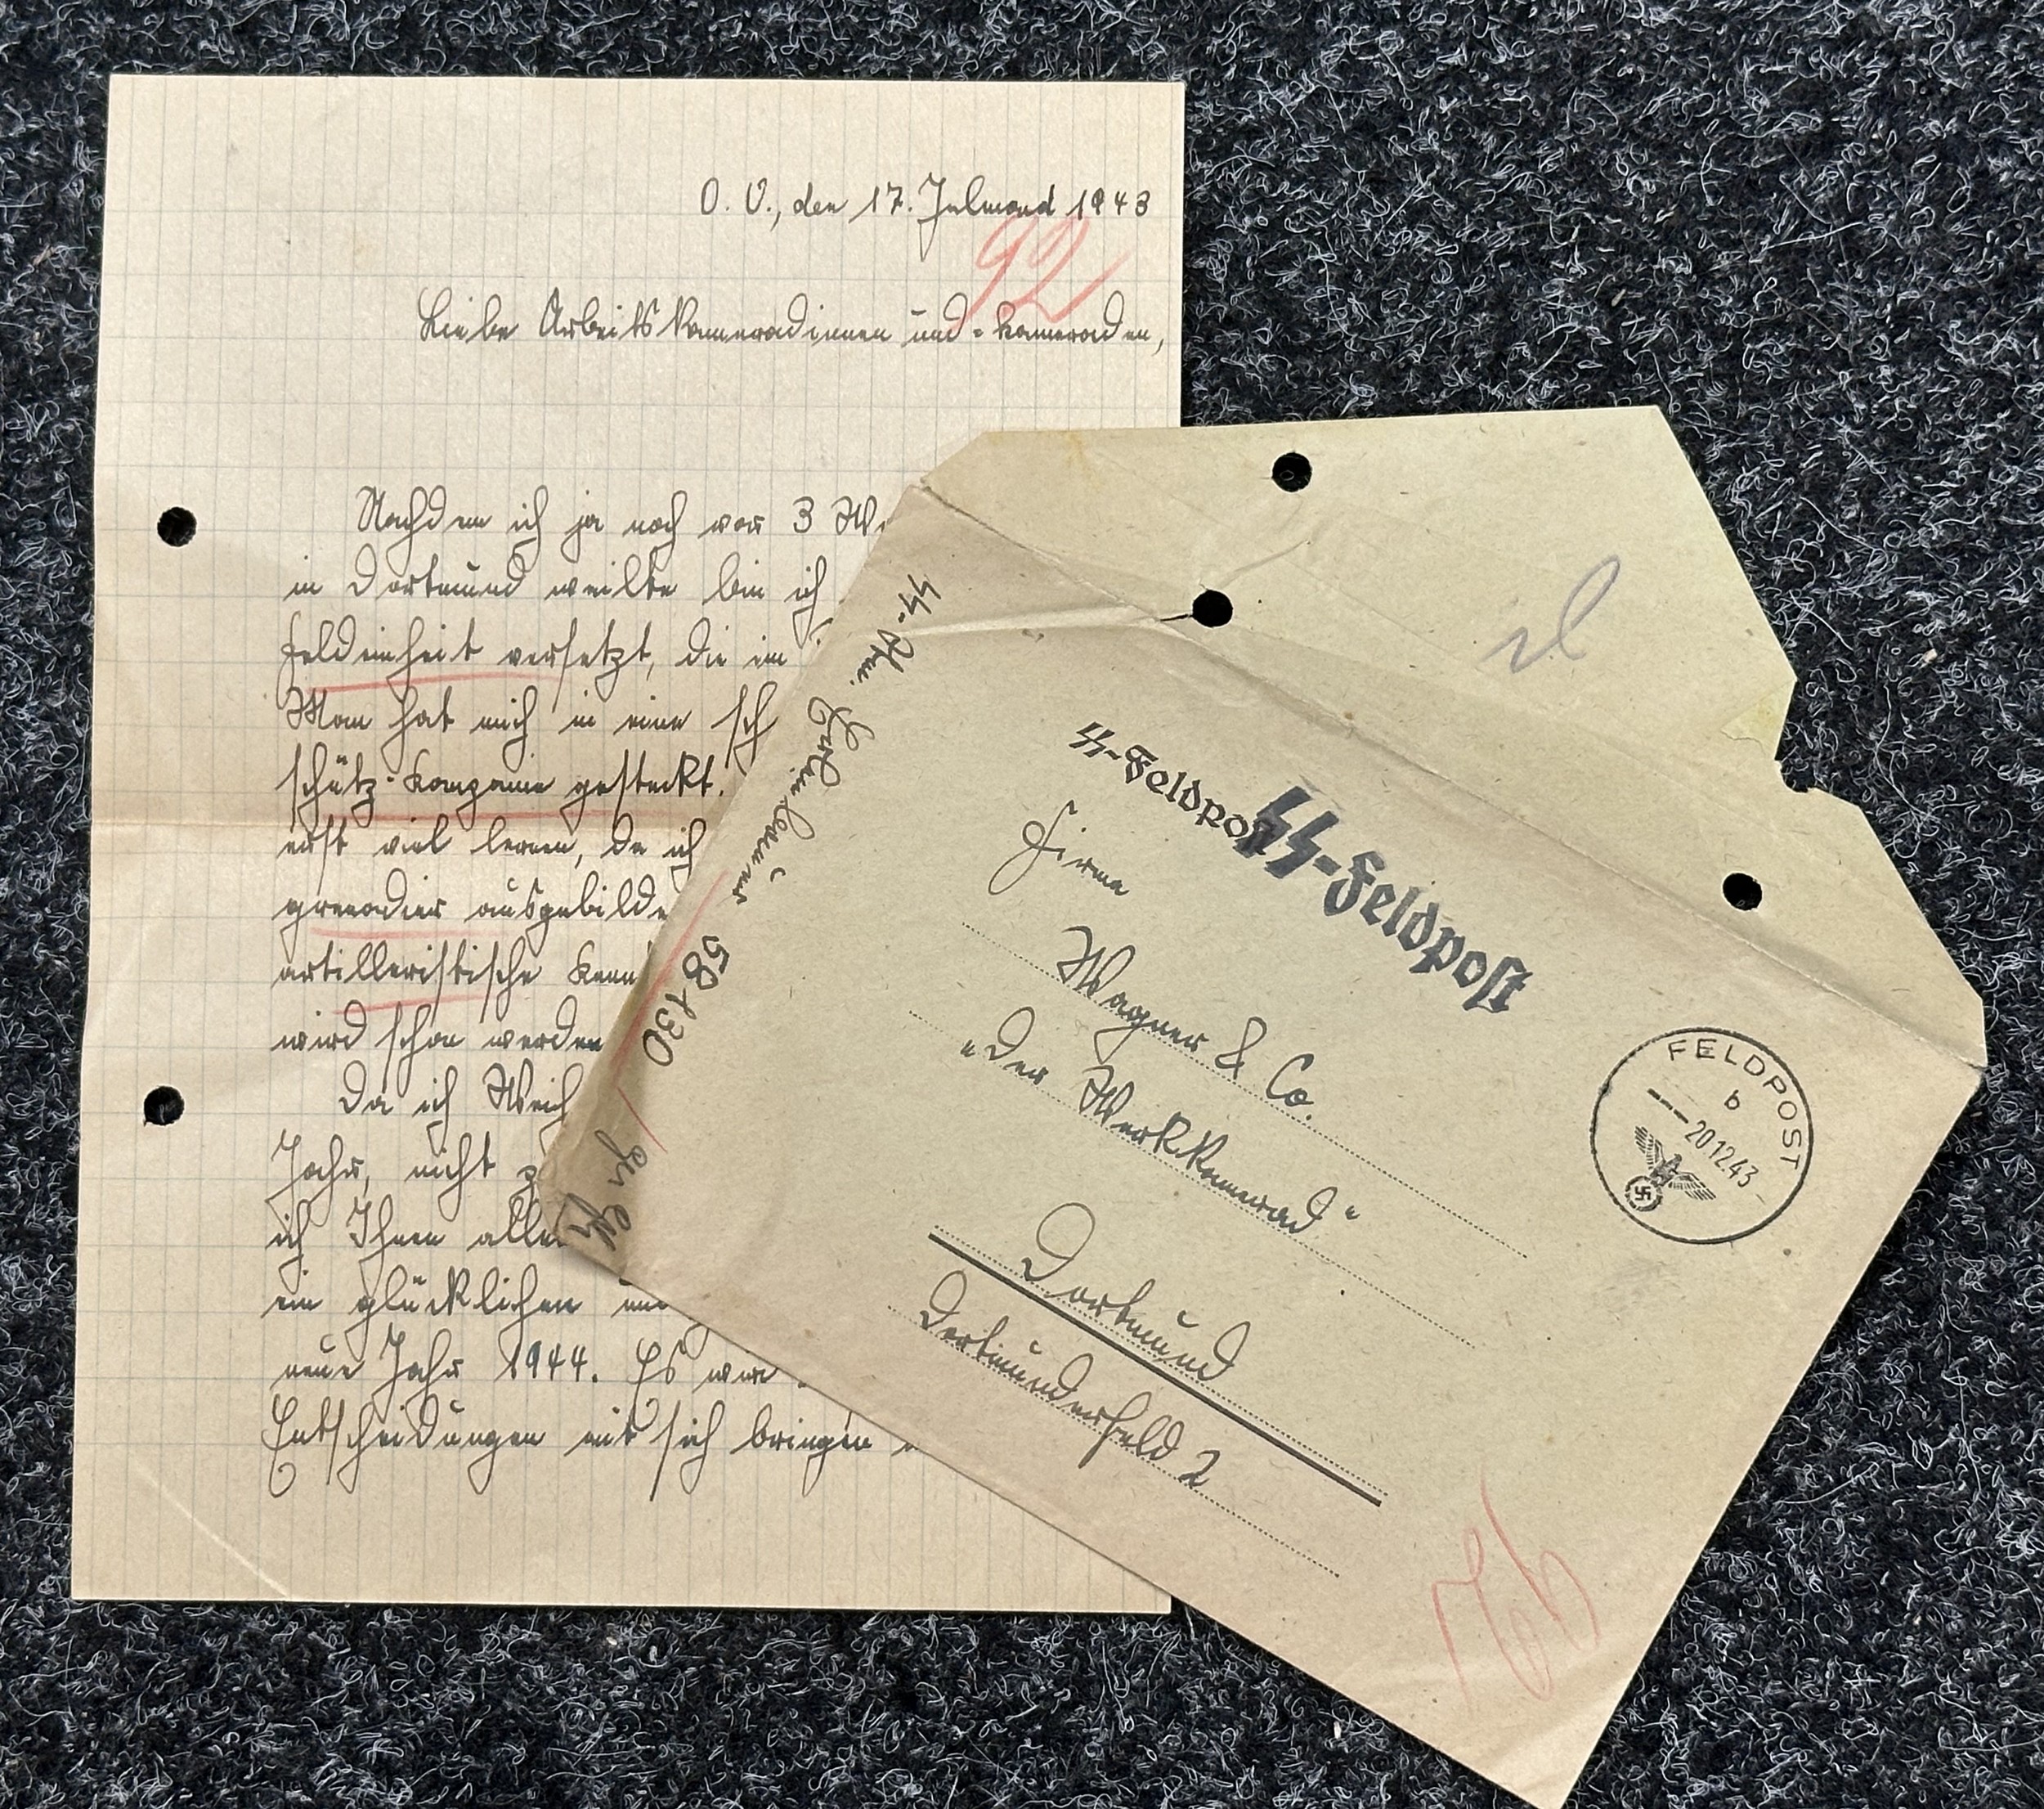 O. U., den 17. Julmond 1943
92
Liebe Arbeitskameradinnen und = kameraden,
Nachdem ich ja noch vor 3 We
in Dortmund weilte bin ich
Feldeinheit versetzt, die im
Man hat mich in eine sch
schütz-Kompanie gesteckt.
erst viel lernen, da ich
grenadier ausgebilde
artilleristische Kenn
wird schon werden
Da ich Weih
Jahr, nicht
ich Ihnen allen
ein glücklichen und
neue Jahr 1944. Es wird
Entscheidungen mit sich bringen
SS-Feldpost
SS-Feldpost
Firma
Wagner & Co.
"Der Werkkamerad"
Dortmund
Dortmunderfeld 2
FELDPOST
b
---20.12.43-
SS-
58130